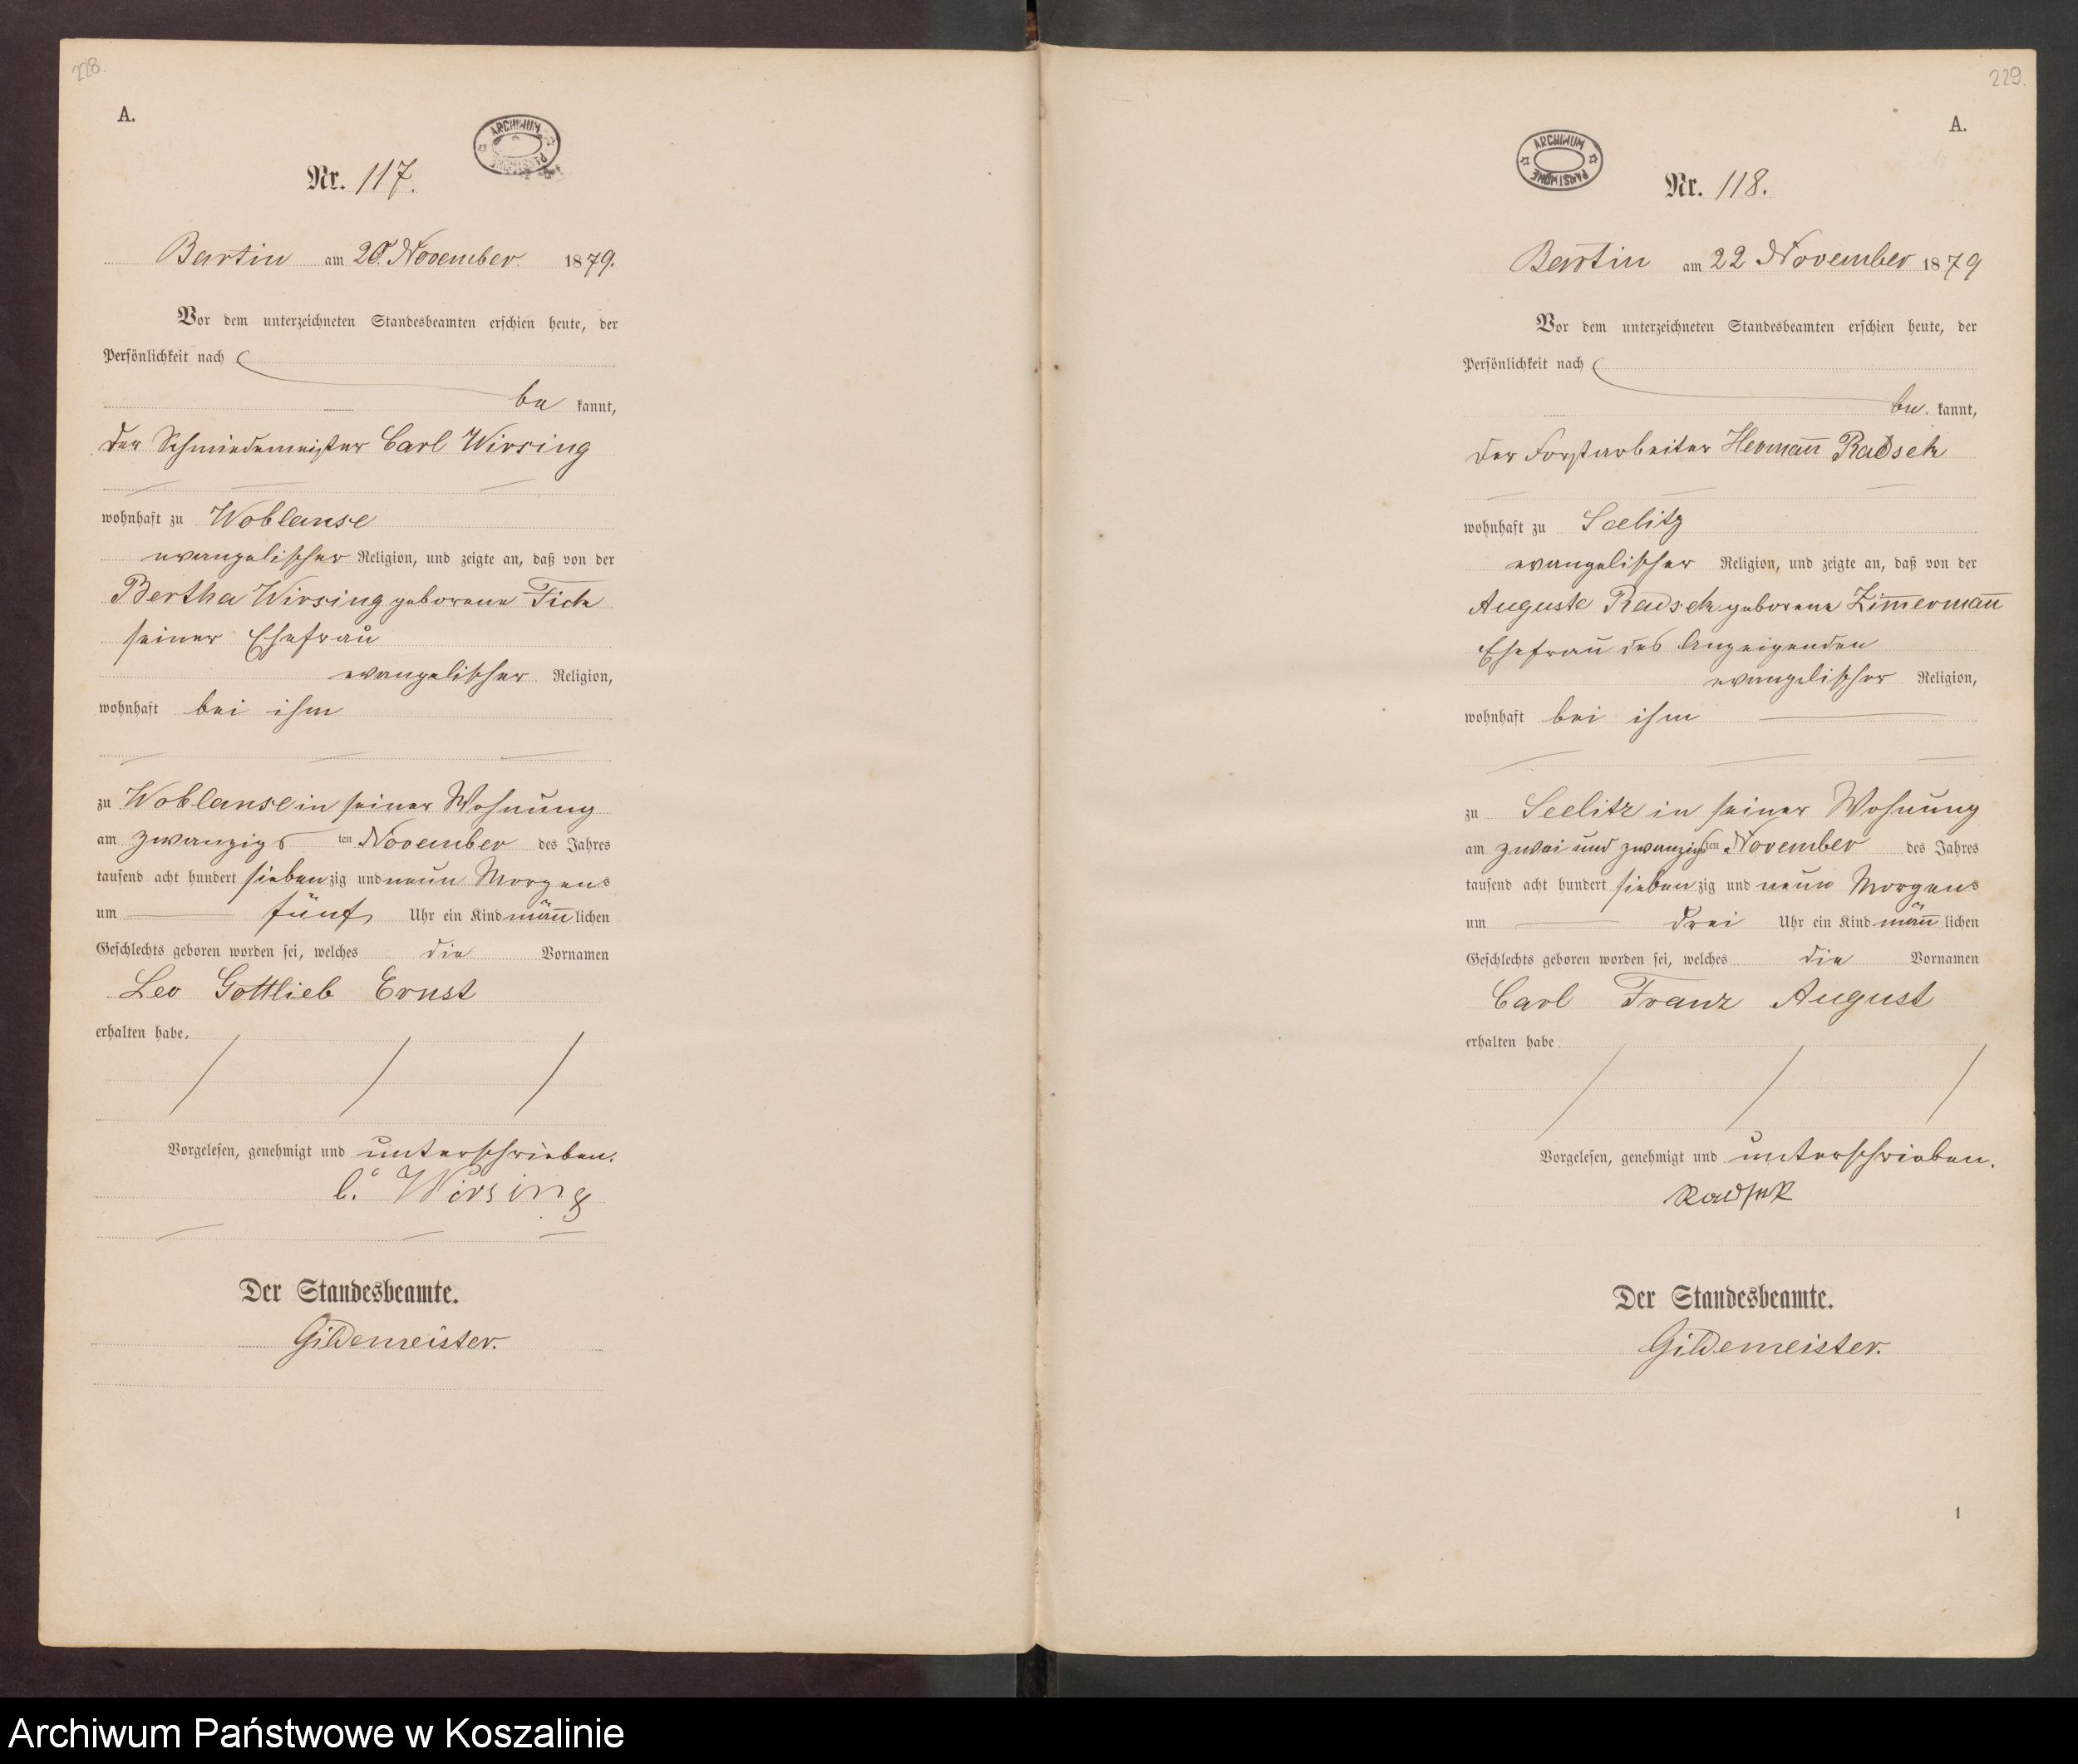 228.
A.
ARCHIWUM PAŃSTWOWE
Nr. 117.
Bartin am 20. November 1879.
Vor dem unterzeichneten Standesbeamten erschien heute, der
Persönlichkeit nach
be kannt,
der Schmiedemeister Carl Wirsing
wohnhaft zu Woblanse
evangelischer Religion, und zeigte an, daß von der
Bertha Wirsing geborene
seiner Ehefrau
evangelischer Religion,
wohnhaft bei ihm
zu Woblanse in seiner Wohnung
am zwanzigs ten November des Jahres
tausend acht hundert sieben zig und neun Morgens
um fünf Uhr ein Kind män̅lichen
Geschlechts geboren worden sei, welches die Vornamen
Leo Gottlieb Ernst
erhalten habe.
Vorgelesen, genehmigt und unterschrieben.
C. Wirsing
Der Standesbeamte.
Gildemeister.
229.
A.
ARCHIWUM PAŃSTWOWE
Nr. 118.
Bartin am 22 November 1879
Vor dem unterzeichneten Standesbeamten erschien heute, der
Persönlichkeit nach
be kannt,
der Forstarbeiter Herman̅ Radsek
wohnhaft zu Seelitz
evangelischer Religion, und zeigte an, daß von der
Auguste Radsek geborene Zim̅erman̅
Ehefrau des Anzeigenden
evangelischer Religion,
wohnhaft bei ihm
zu Seelitz in seiner Wohnung
am zwei und zwanzigsten November des Jahres
tausend acht hundert sieben zig und neun Morgens
um drei Uhr ein Kind män̅ lichen
Geschlechts geboren worden sei, welches die Vornamen
Carl Franz August
erhalten habe
Vorgelesen, genehmigt und unterschrieben.
Radsek
Der Standesbeamte.
Gildemeister.
1
Archiwum Państwowe w Koszalinie